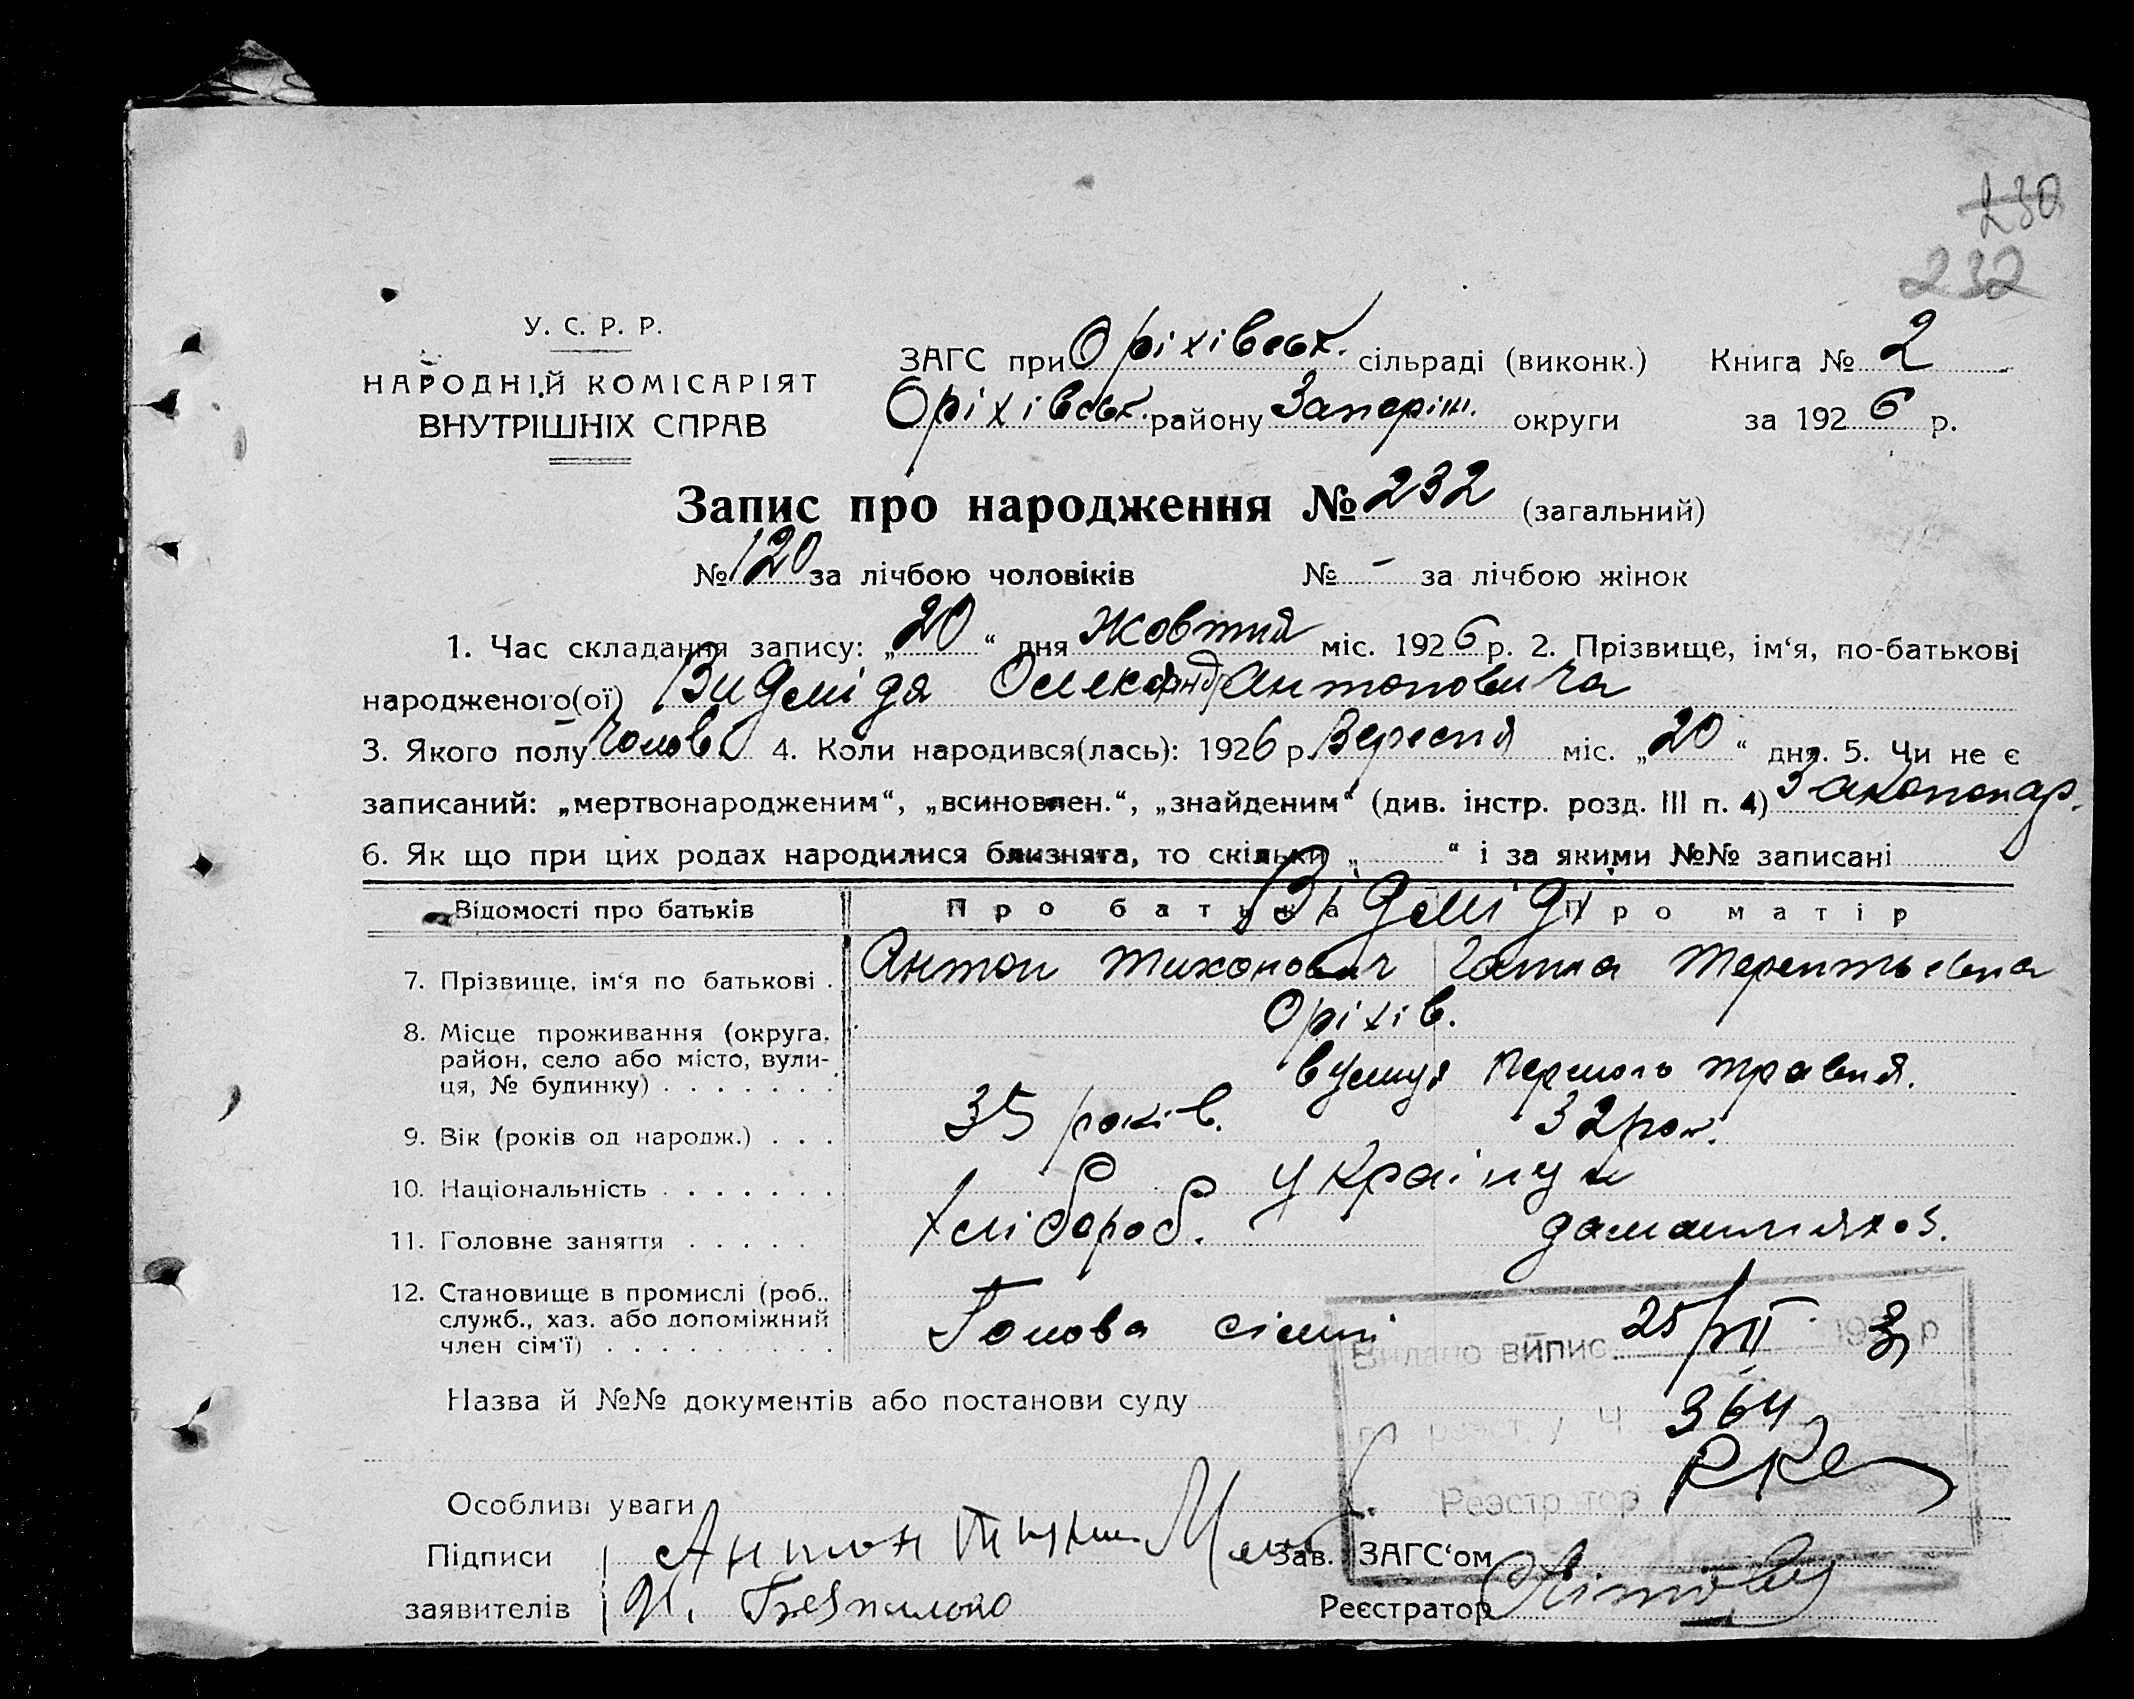 230
232
У. С. Р. Р.
НАРОДНІЙ КОМІСАРІЯТ
ВНУТРІШНІХ СПРАВ
ЗАГС при Оріхівськ. сільраді (виконк.) Книга № 2
Оріхівськ. району Запоріж. округи за 1926 р.
Запис про народження № 232 (загальний)
№ 120 за лічбою чоловіків № - за лічбою жінок
1. Час складання запису: „20“ дня жовтня міс. 1926 р. 2. Прізвище, ім‘я, по-батькові
народженого(ої) Олександр Антоновича
3. Якого полу чолов. 4. Коли народився(лась): 1926 р. Вересня міс. „20“ дня. 5. Чи не є
записаний: „мертвонародженим“, „всиновлен.“, „знайденим“ (див. інстр. розд. III п. 4) Законнонар.
6. Як що при цих родах народилися близнята, то скільки „ “ і за якими №№ записані
Відомості про батьків Про батька Про матір
7. Прізвище, ім‘я по батькові . Антон Тихонович Ганна Терентьевна
8. Місце проживання (округа, район, село або місто, вулиця, № будинку) Оріхів.
вулиця Першого травня.
9. Вік (років од народж.) . . . 35 років. 32 рок.
10. Національність Українці
11. Головне заняття Хлібороб. домашнях оз.
12. Становище в промислі (роб., служб., хаз. або допоміжний член сім‘ї) Голова сімї
Видано випис. 25/VII 193 р
364
Назва й №№ документів або постанови суду
по реєстру Ч
Реєстратор
Особливі уваги
Підписи Антон Зав. ЗАГС‘ом
заявителів Реєстратор